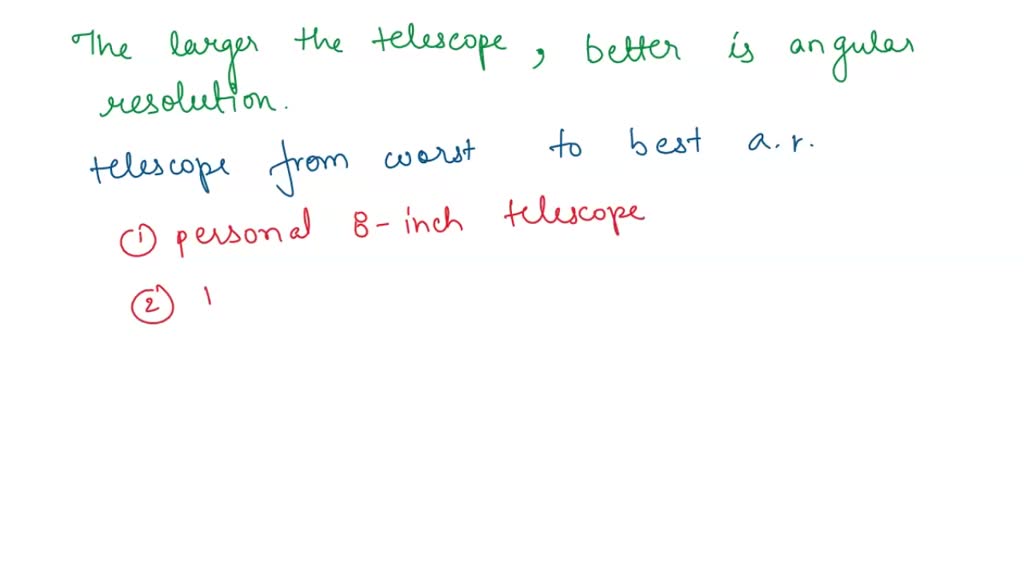 The larger the telescope, better is angular
resolution.
telescope from worst to best a.r.
① personal 8-inch telescope
② 1